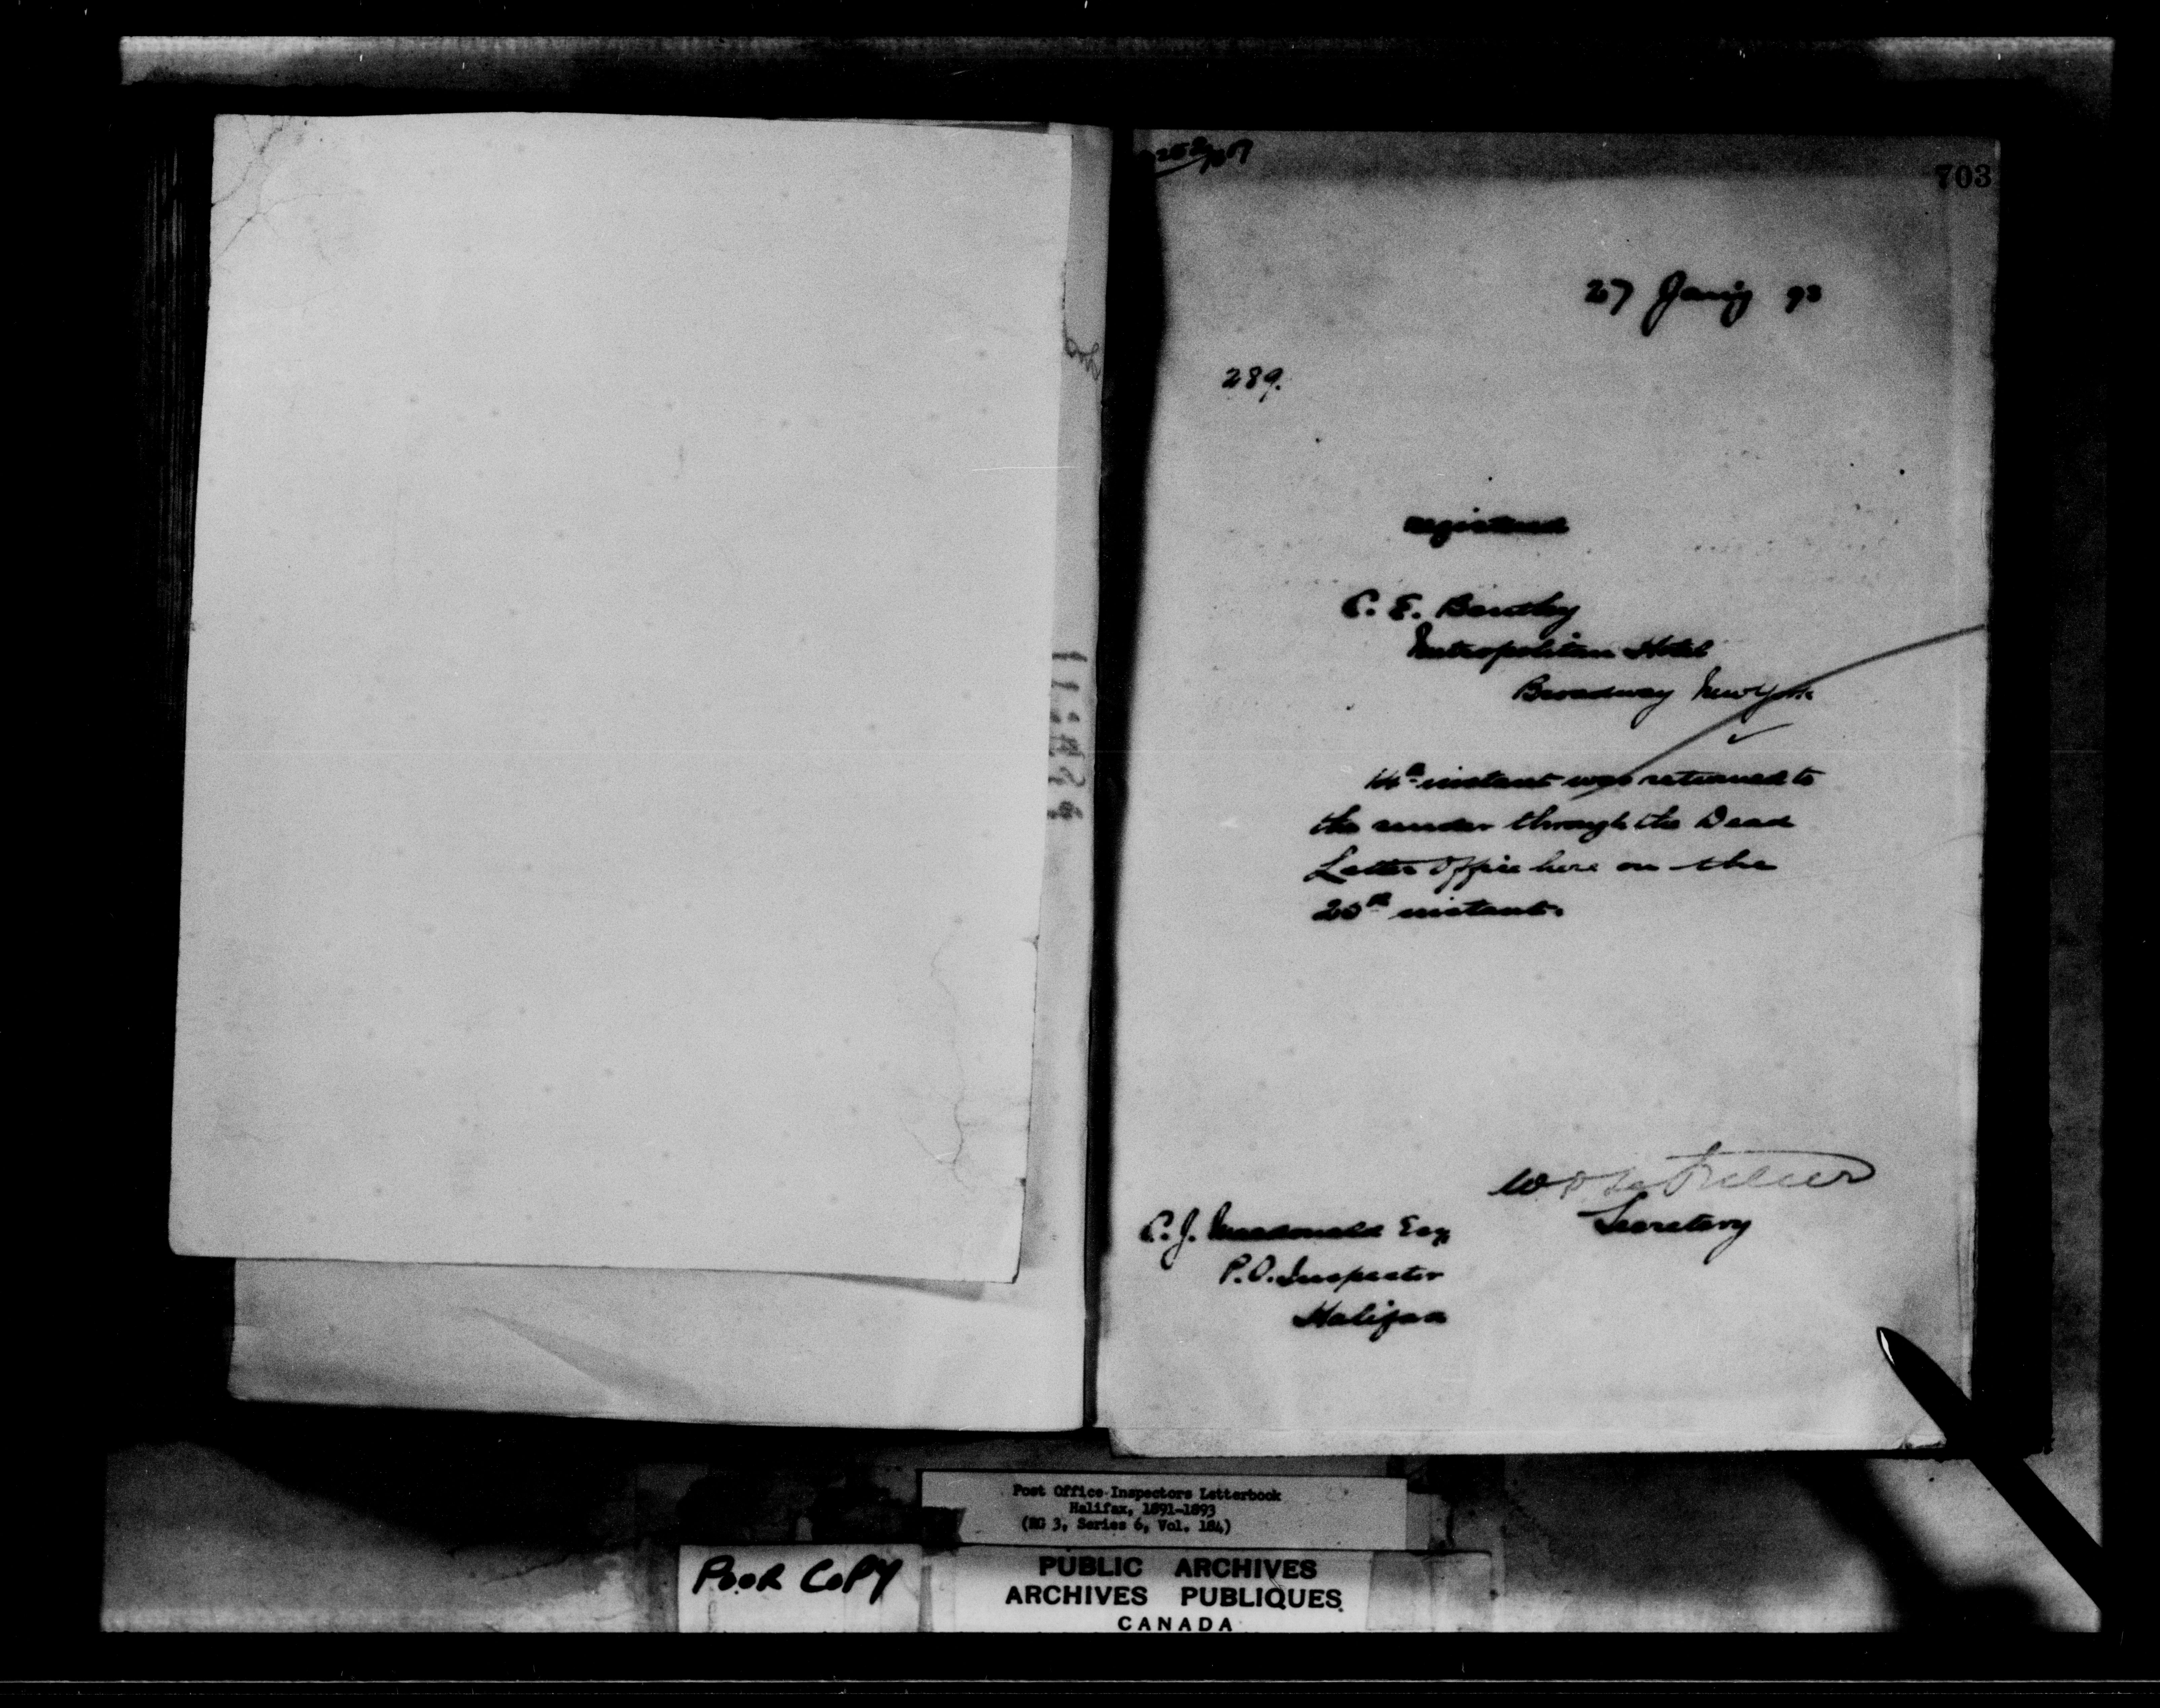 703
27 Jany 93
289.
registered
C. E. Bentley
Metropolitan Hotel
Broadway New York
14th instant was returned to
the sender through the Dead
Letter Office here on the
20th instant.
Secretary
C. J. Macdonald Esq
P.O. Inspector
Halifax
Post Office Inspectors Letterbook
Halifax, 1891-1893
(RG 3, Series 6, Vol. 184)
POOR COPY
PUBLIC ARCHIVES
ARCHIVES PUBLIQUES
CANADA